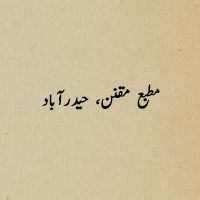 مطبع مقنن، حیدرآباد